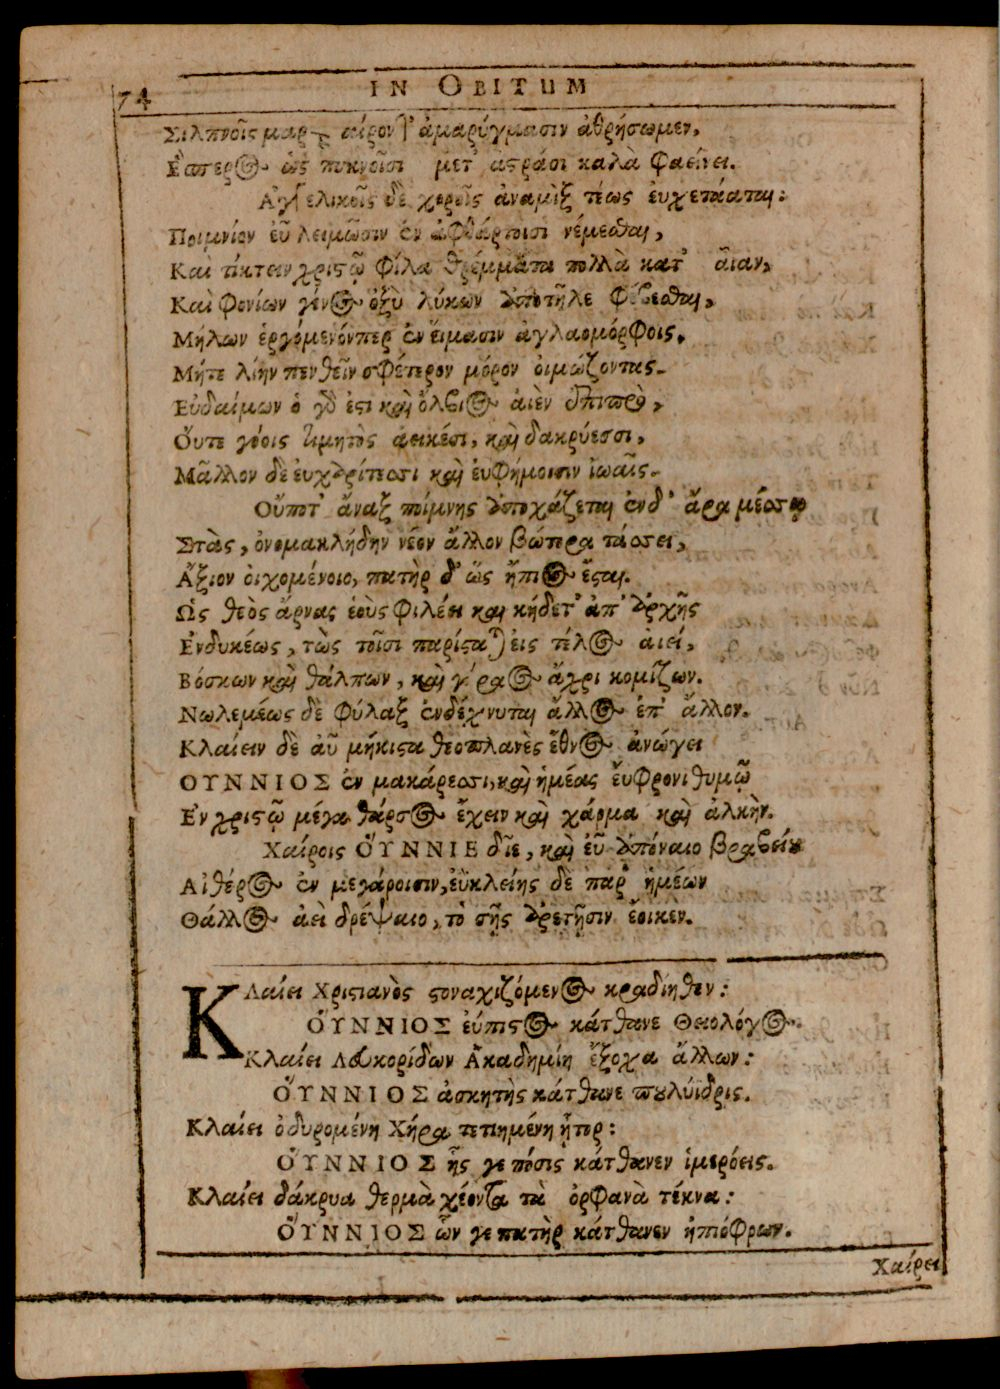 74
IN OBITUM
Σιλπνοῖς μαρμαίρονθ' ἀμαρύγμασιν ἀθρήσωμεν,
Ἕσπερος ὡς πυκνοῖσι μετ' ἀστράσι καλὰ φαείνει.
Ἀγγελικοῖς δὲ χοροῖς ἀναμὶξ τέως εὐχετάαται:
Ποιμνίον εὖ λειμῶσιν ἐν ἀφθάρτοισι νέμεσθαι,
Καὶ τίκτειν χριστῷ φίλα θρέμματα πολλὰ κατ' αἶαν,
Καὶ φονίων γένος ὀξὺ λύκων ἀποτῆλε φέβεσθαι,
Μήλων ἐρχόμενόνπερ ἐν εἵμασιν ἀγλαομόρφοις.
Μήτε λίην πενθεῖν σφέτερον μόρον οἰμώζοντας.
Εὐδαίμων ὁ γὰρ ἐστι καὶ ὄλβιος αἰὲν ἐπιπρὸ,
Οὔτε γόοις τιμητὸς ἀεικέσι, καὶ δακρύεσσι,
Μᾶλλον δὲ εὐχαρίτεσσι καὶ εὐφήμοισιν ἰωαῖς.
Οὔποτ' ἄναξ ποίμνης ἀποχάζεται ἐνδ' ἄρα μέσσῳ
Στὰς, ὀνομακλήδην νέον ἄλλον βώτορα τάσσει,
Ἄξιον οἰχομένοιο, πατὴρ δ' ὣς ἤπιος ἔσται.
Ὡς θεὸς ἄρνας ἑοὺς φιλέει καὶ κήδετ' ἀπ' ἀρχῆς
Ἐνδυκέως, τὼς τοῖσι παρίσταται εἰς τέλος αἰεί,
Βόσκων καὶ θάλπων, καὶ γήραος ἄχρι κομίζων.
Νωλεμέως δὲ φύλαξ ἐνδέχνυται ἄλλος ἐπ' ἄλλον.
Κλαίειν δὲ αὖ μήκιστα θεοπλανὲς ἔθνος ἀνώγει
ΟΥΝΝΙΟΣ ἐν μακάρεσσι, καὶ ἡμέας εὔφρονι θυμῷ
Ἐν χριστῷ μέγα θάρσος ἔχειν καὶ χάρμα καὶ ἀλκὴν.
Χαίροις ΟὝΝΝΙΕ δῖε, καὶ εὖ ἀπόναιο βραβείου
Αἰθέρος ἐν μεγάροισιν, εὐκλείης δὲ παρ' ἡμέων
Θάλλος ἀεὶ δρέψαιο, τὸ σῇς ἀρετῇσιν ἔοικεν.
Κλαίει Χριστιανὸς στοναχιζόμενος κραδίηθεν:
ΟὝΝΝΙΟΣ εὔπιστος κάτθανε Θειολόγος.
Κλαίει Λευκορίδων Ἀκαδημίη ἔξοχα ἄλλων:
ΟὝΝΝΙΟΣ ἀσκητὴς κάτθανε πουλύϊδρις.
Κλαίει ὀδυρομένη Χήρα τετιημένη ἦτορ:
ΟὝΝΝΙΟΣ ἧς γε πόσις κάτθανεν ἱμερόεις.
Κλαίει δάκρυα θερμὰ χέοντα τὰ ὀρφανὰ τέκνα:
ΟὝΝΝΙΟΣ ὧν γε πατὴρ κάτθανεν ἠπιόφρων.
Χαίρει